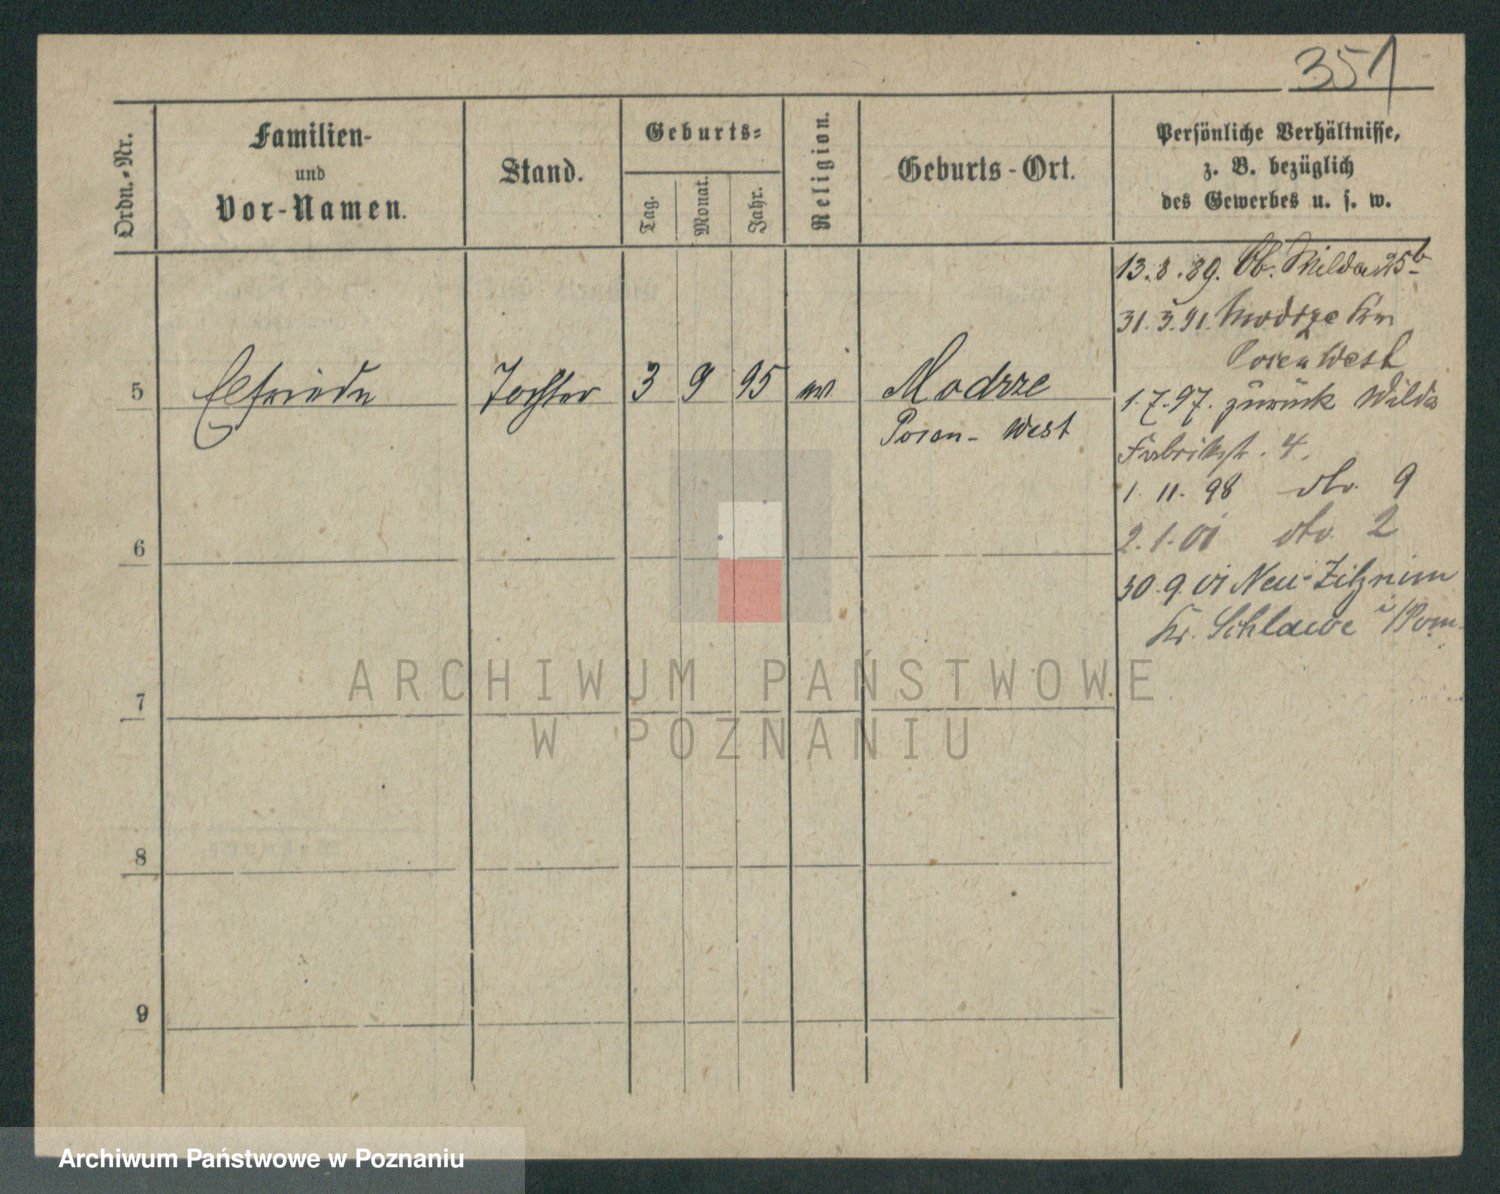 351
Ordn.-Nr.
Familien-
und
Vor-Namen.
Stand.
Geburts-
Tag.
Monat.
Jahr.
Religion.
Geburts-Ort.
Persönliche Verhältnisse,
z. B. bezüglich
des Gewerbes u. s. w.
13.8.89. Ob. Wilda 25b
31.3.91. Modrze Kr.
Posen West
5 Elfriede Tochter 3 9 95 Modrze
Posen- West
1.7.97. zurück Wilda
Fabrikstr. 4.
1.11.98 dto. 9
2.1.01 dto. 2
30.9.01 Neu-
Kr. Schlawe i/Pom.
6
7
8
9
ARCHIWUM PAŃSTWOWE
W POZNANIU
Archiwum Państwowe w Poznaniu